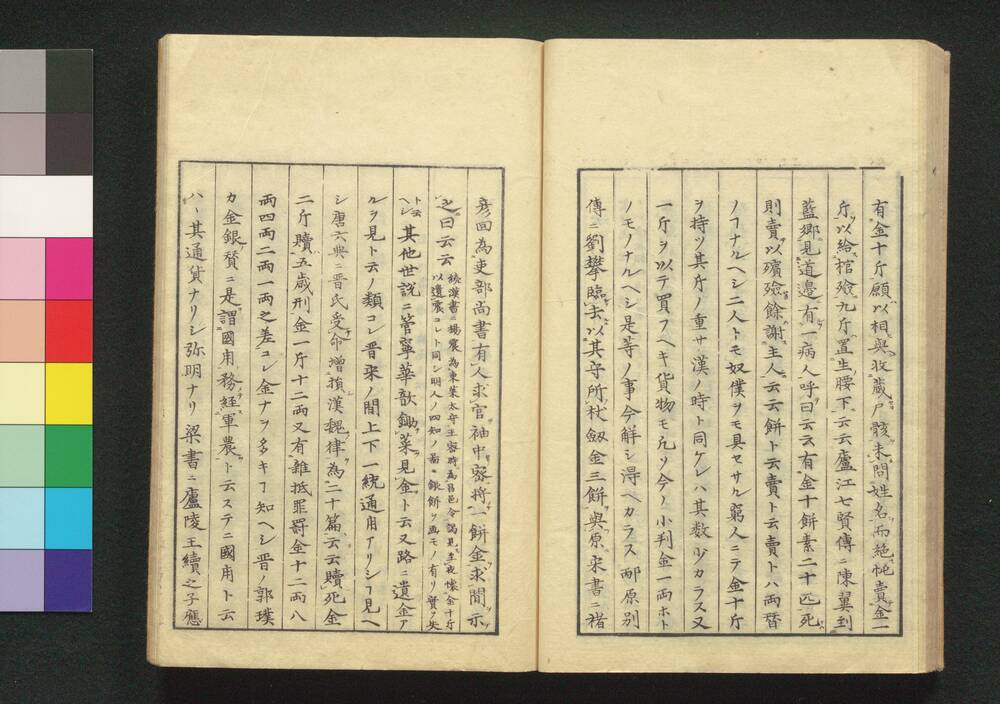 有金十斤願以相與收藏尸骸未問姓名而絶忳賣金一
斤以給棺殮九斤置生腰下云云廬江七賢傳ニ陳翼到
藍郷見道邊有一病人呼曰云云有金十餅素二十匹死
則賣以殯殮餘謝主人云云餅ト云賣ト云賣トハ両替
ノフナルヘシ二人トモ奴僕ヲモ具セサル窮人ニテ金十斤
ヲ持ツ其斤ノ重サ漢ノ時ト同ケレハ其数少カラス又
一斤ヲ以テ買フヘキ貨物モ凡ソ今ノ小判金一両ホト
ノモノナルヘシ是等ノ事今解シ得ヘカラス邴原別
傳ニ劉攀臨去以其守所杖劔金三餅與原宋書ニ褚
彦回為吏部尚書有人求官袖中密将一餅金求間示
之曰云云
後漢書ニ楊震為東萊太守王密時為昌邑令謁見至夜懐金十斤
以遺震コレト同シ明人ノ四知ノ
ト云ヘシ其他世説ニ管寧華歆鋤菜見金ト云又路ニ遺金ア
ルヲ見ト云ノ類コレ晋来ノ間上下一統通用アリシヿ見ヘ
シ唐六典ニ晋氏受命増損漢魏律為二十篇云云贖死金
二斤贖五歳刑金一斤十二両又有雜抵罪罰金十二両八
両四両二両一両之差コレ金ナヲ多キヿ知ヘシ晋ノ郭璞
カ金銀賛ニ是謂國用務經軍農ト云ステニ國用ト云
ハ其通貨ナリシ弥明ナリ 梁書ニ廬陵王續之子應